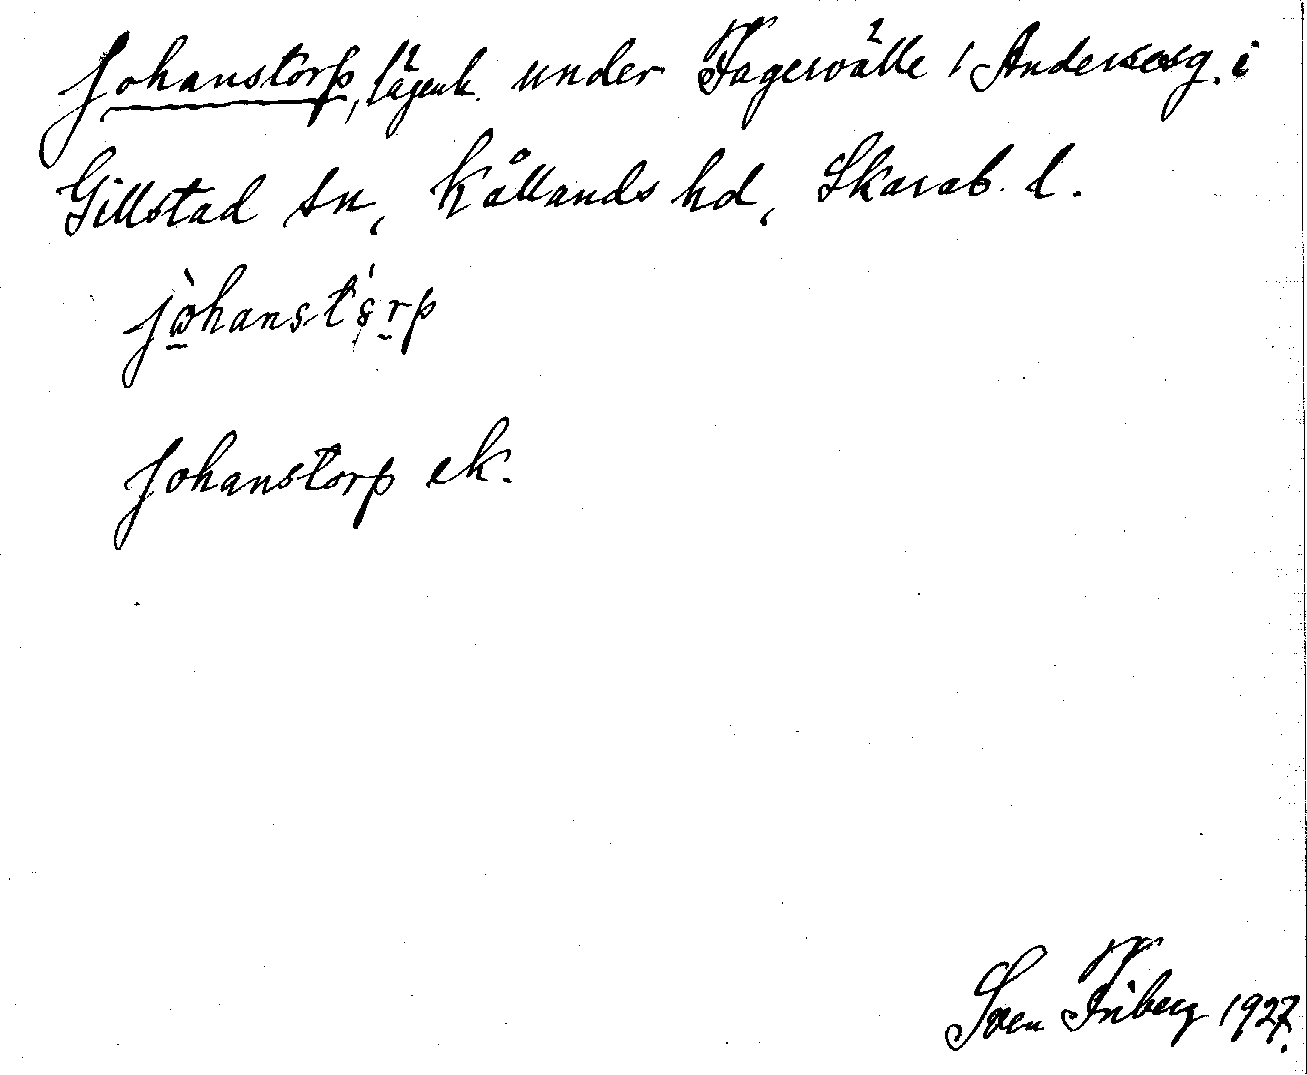 Johanstorp, lägenh. under Fagervälle 1 Andersesg. i
Gillstad sn, Kållands hd, Skarab. l.
Johanstorp ek.
Sven Friberg 1927.